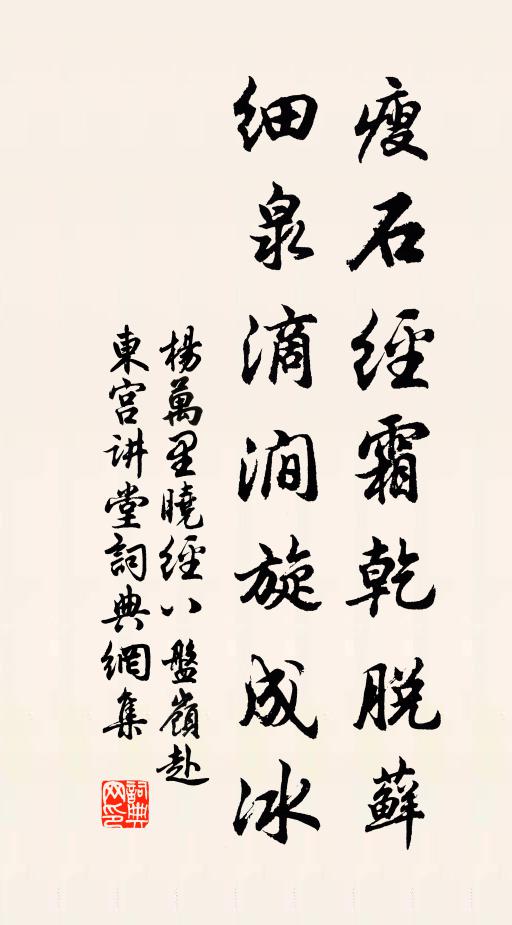 瘦石經霜乾脫蘚
細泉滴澗旋成冰
楊萬里曉經八盤嶺赴
東宮讲堂詞典網集
詞典
网印